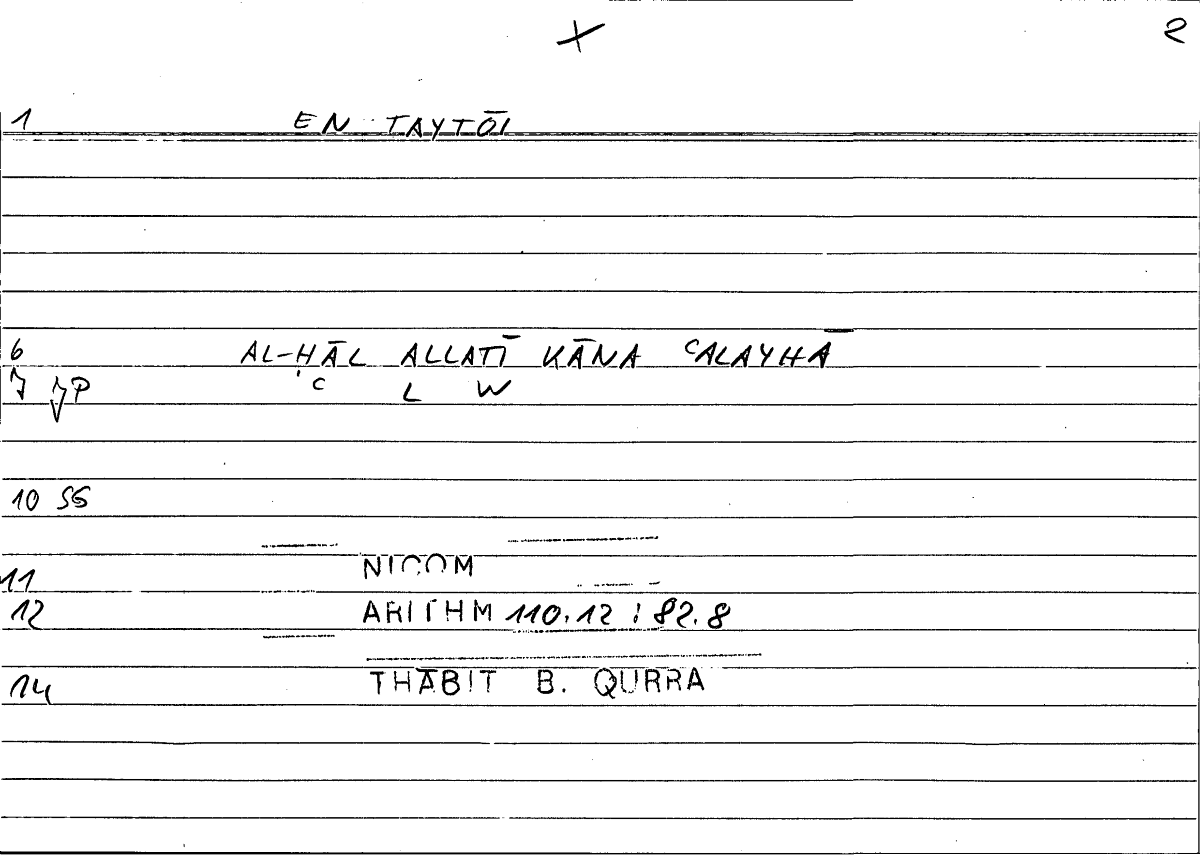 X 2
1 EN TAYTŌI
6 AL-ḤĀL ALLATĪ KĀNA ᶜALAYHĀ
C L W
10 SG
11 NICOM
12 ARITHM 110.12 : 82.8
14 THĀBIT B. QURRA